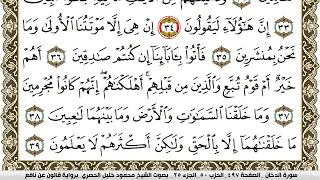 ٣٣ إِنَّ هَٰٓؤُلَآءِ لَيَقُولُونَ ٣٤ إِنْ هِيَ إِلَّا مَوْتَتُنَا ٱلْأُولَىٰ وَمَا
نَحْنُ بِمُنشَرِينَ ٣٥ فَأْتُوا۟ بِـَٔابَآئِنَآ إِن كُنتُمْ صَٰدِقِينَ ٣٦ أَهُمْ
خَيْرٌ أَمْ قَوْمُ تُبَّعٍ وَٱلَّذِينَ مِن قَبْلِهِمْ أَهْلَكْنَٰهُمْ إِنَّهُمْ كَانُوا۟ مُجْرِمِينَ
٣٧ وَمَا خَلَقْنَا ٱلسَّمَٰوَٰتِ وَٱلْأَرْضَ وَمَا بَيْنَهُمَا لَٰعِبِينَ ٣٨
مَا خَلَقْنَٰهُمَآ إِلَّا بِٱلْحَقِّ وَلَٰكِنَّ أَكْثَرَهُمْ لَا يَعْلَمُونَ ٣٩
سورة الدخان _ الصفحة ٤٩٧ _ الحزب ٥٠ _ الجزء ٢٥ _ بصوت الشيخ محمود خليل الحصري _ برواية قالون عن نافع